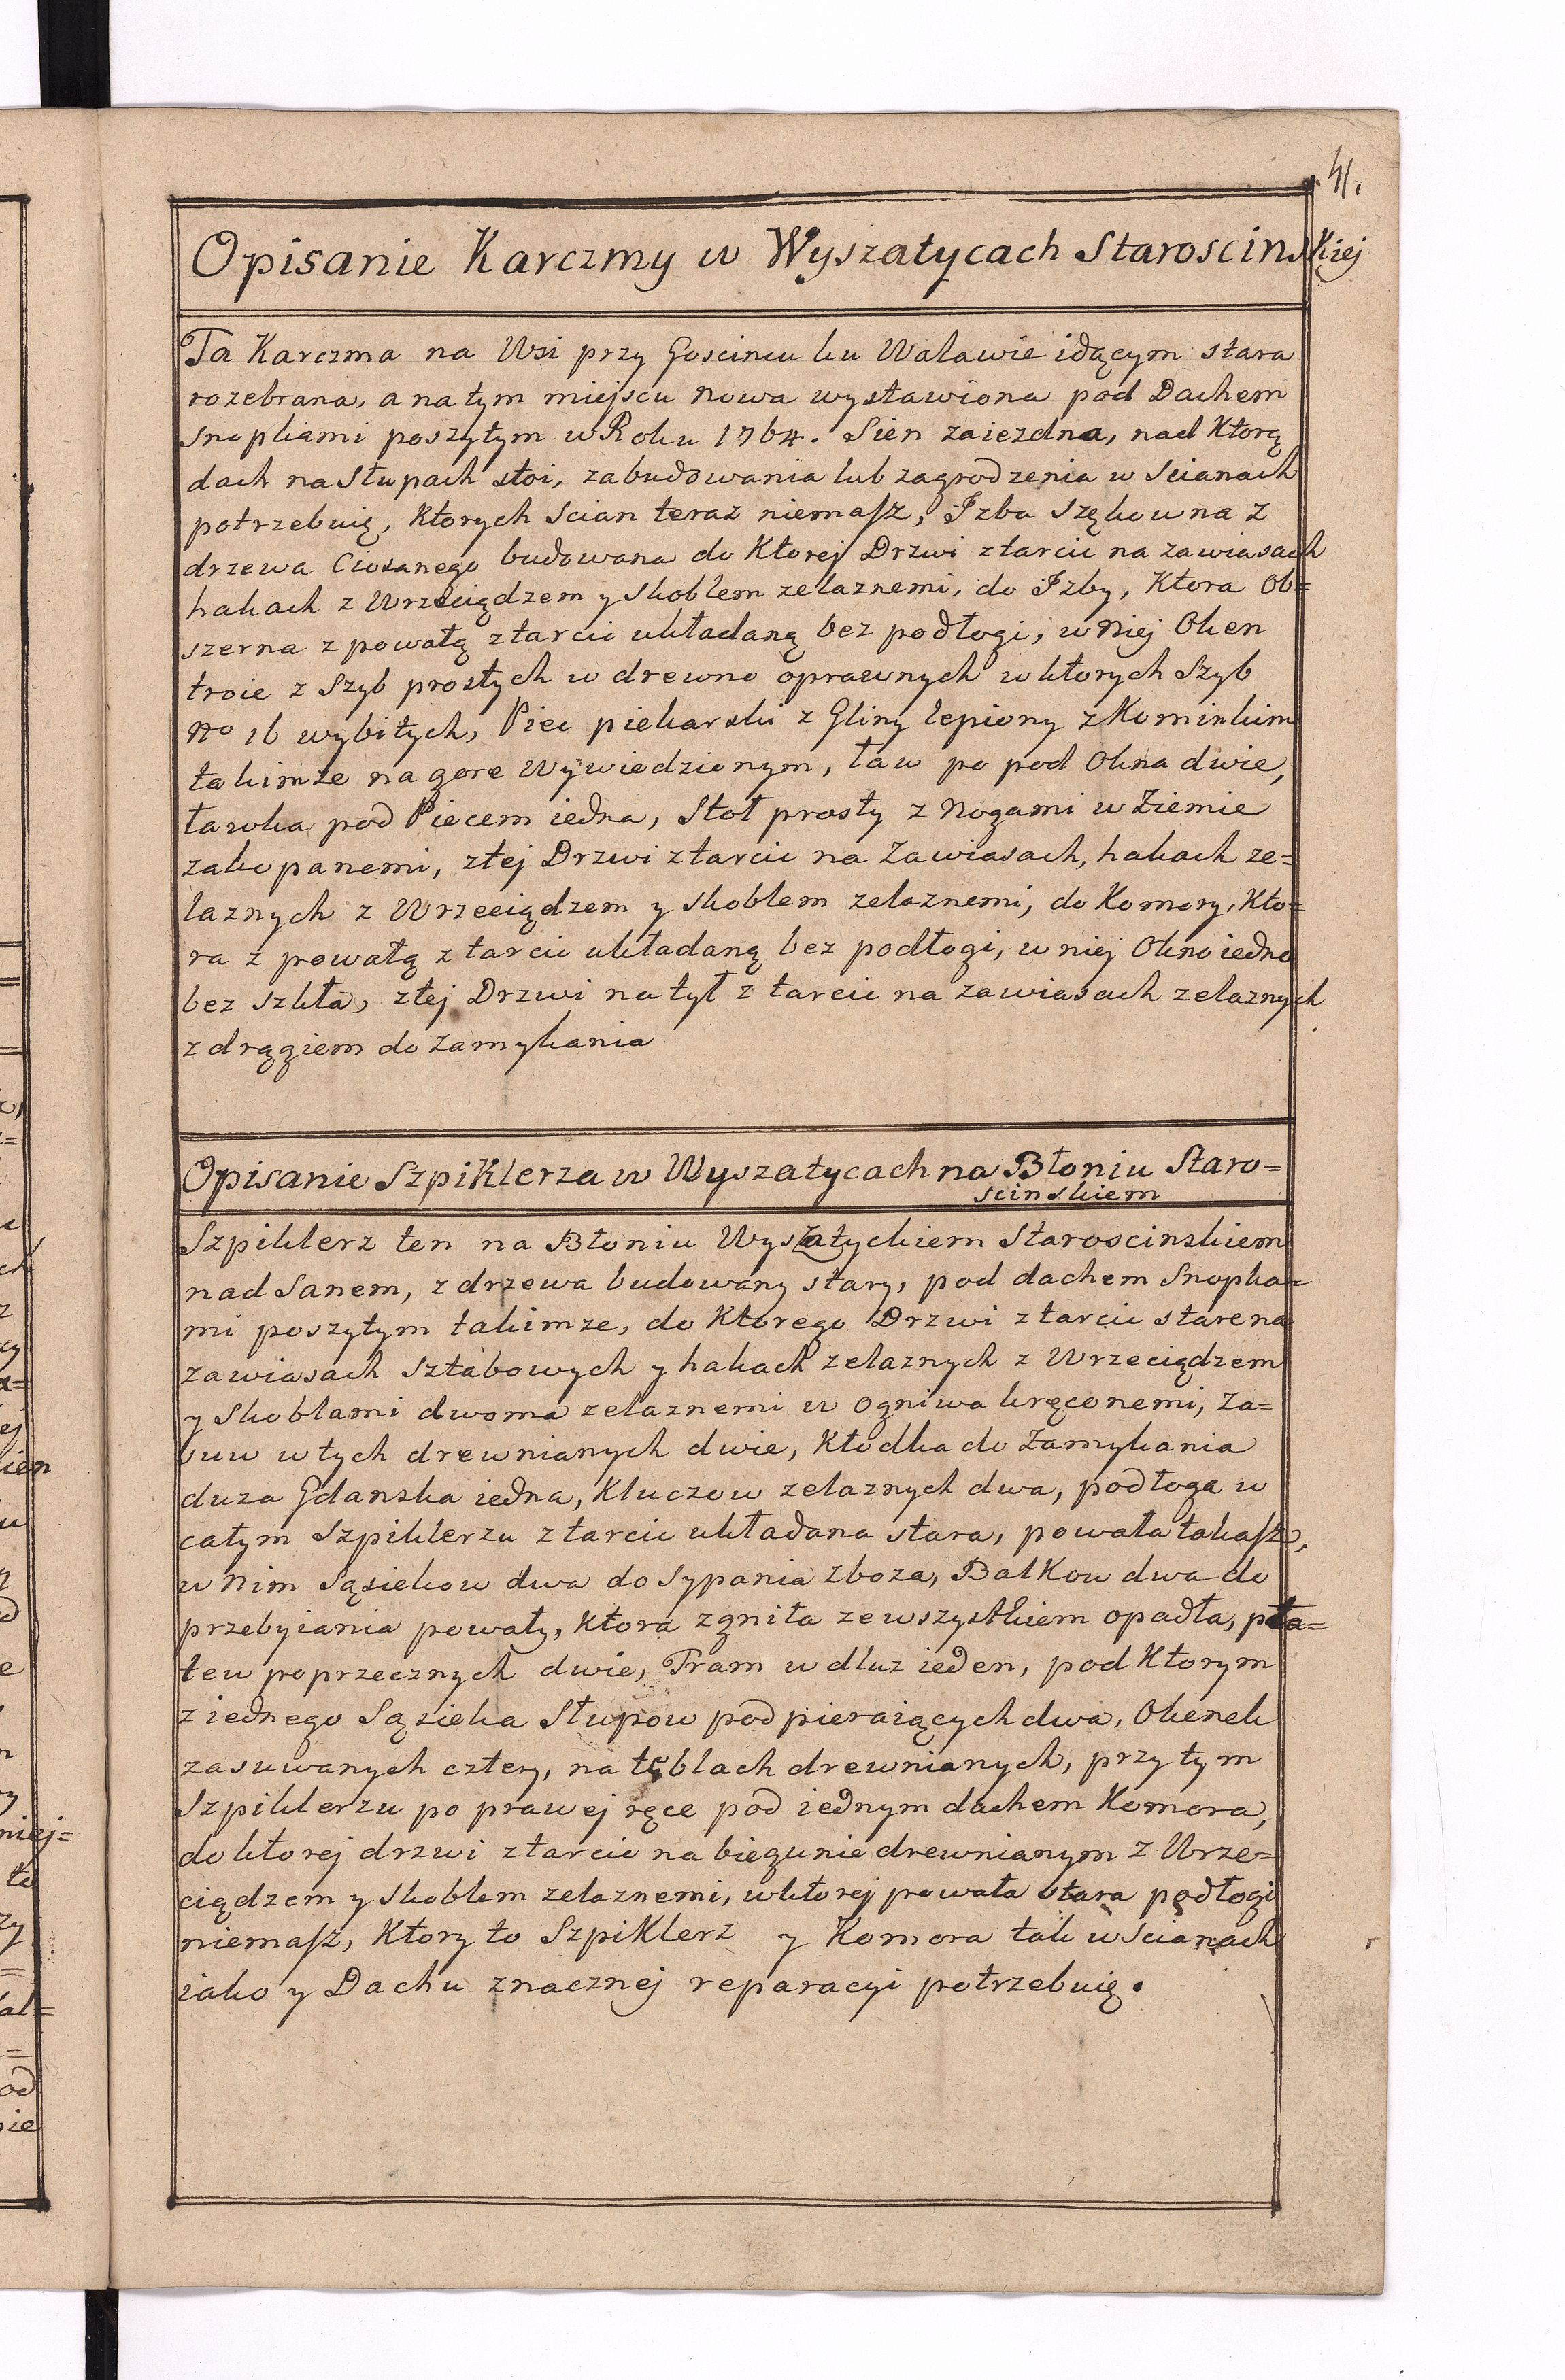 41.
Opisanie Karczmy w Wyszatycach Staroscinskiej
Ta Karczma na Wsi przy Goscincu ku Walawie idącym stara
rozebrana, a na tym miejscu nowa wystawiona pod Dachem
snopkami poszytym w Roku 1764. Sien zaiezdna, nad Ktorą
dach na Słupach stoi, zabudowania lub zagrodzenia w Scianach
potrzebuię, Ktorych Scian teraz niemasz, Izba Szękowna z
drzewa Ciosanego budowana do Ktorej Drzwi z tarcic na zawiasach
hakach z Wrzeciądzem y skoblem zelaznemi, do Izby, Ktora Ob=
szerna z powałą z tarcic układaną bez podłogi, w niej Okien
troie z Szyb prostych w drewno oprawnych w ktorych Szyb
No 16 wybitych, Piec piekarski z Gliny lepiony z Kominkiem
takimze na gore Wywiedzionym, ław po pod Okna dwie,
ławka pod Piecem iedna, Stoł prosty z Nogami w Ziemie
zakopanemi, z tej Drzwi z tarcic na Zawiasach, hakach ze=
laznych z Wrzeciądzem y skoblem zelaznemi, do Komory, Kto=
ra z powałą z tarcic układaną bez podłogi, w niej Okno iedno
bez szkła, z tej Drzwi na tył z tarcic na zawiasach zelaznych
z drągiem do zamykania
Opisanie Szpiklerza w Wyszatycach na Błoniu Staro=
scinskiem
Szpiklerz ten na Błoniu Wyszatyckiem Staroscinskiem
nad Sanem, z drzewa budowany stary, pod dachem Snopka=
mi poszytym takimze, do Ktorego Drzwi z tarcic stare na
zawiasach Sztabowych y hakach zelaznych z Wrzeciądzem
y Skoblami dwoma zelaznemi w ogniwa kręconemi, Za=
suw w tych drewnianych dwie, Kłodka do Zamykania
duza Gdanska iedna, Kluczow zelaznych dwa, podłoga w
całym Szpiklerzu z tarcic układana stara, powała takasz,
w nim Sąsiekow dwa do sypania zboza, Balkow dwa do
przebyiania powały, Ktora zgniła ze wszystkiem opadła, pła=
tew poprzecznych dwie, Tram w dluz ieden, pod Ktorym
z iednego Sąsieka Słupow podpieraiących dwa, Okenek
zasuwanych cztery, na teblach drewnianych, przy tym
Szpiklerzu po prawej ręce pod iednym dachem Komora,
do ktorej drzwi z tarcic na biegunie drewnianym z Wrze=
ciądzem y skoblem zelaznemi, w ktorej powała stara podłogi
niemasz, Ktory to Szpiklerz y Komora tak w Scianach
iako y Dachu znacznej reparacyi potrzebuię.